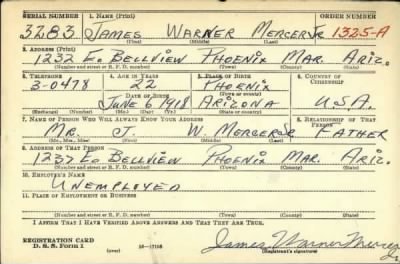 SERIAL NUMBER 1. NAME (Print) ORDER NUMBER
3283 JAMES WARNER MERCER JR 1325-A
(First) (Middle) (Last)
2. ADDRESS (Print)
1232 E. BELLVIEW PHOENIX MAR. ARIZ.
(Number and street or R. F. D. number) (Town) (County) (State)
3. TELEPHONE 4. AGE IN YEARS 5. PLACE OF BIRTH 6. COUNTRY OF CITIZENSHIP
3-0478 22 PHOENIX
DATE OF BIRTH (Town or county)
JUNE 6 1918 ARIZONA U.S.A.
(Mo.) (Day) (Yr.) (State or country)
7. NAME OF PERSON WHO WILL ALWAYS KNOW YOUR ADDRESS 8. RELATIONSHIP OF THAT PERSON
MR. J. W. MERCER SR FATHER
(Mr., Mrs., Miss) (First) (Middle) (Last)
9. ADDRESS OF THAT PERSON
1232 E. BELLVIEW PHOENIX MAR. ARIZ.
(Number and street or R. F. D. number) (Town) (County) (State)
10. EMPLOYER'S NAME
UNEMPLOYED
11. PLACE OF EMPLOYMENT OR BUSINESS
(Number and street or R. F. D. number) (Town) (County) (State)
I AFFIRM THAT I HAVE VERIFIED ABOVE ANSWERS AND THAT THEY ARE TRUE.
REGISTRATION CARD
D. S. S. Form 1 (over) 16-17105 (Registrant's signature)
James Warner Mercer Jr.